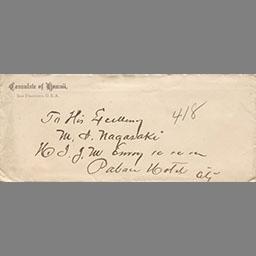 Consulate of Hawaii,
San Francisco, U.S.A.
418
To His Excellency
M. I. Nagasaki
H I J M Envoy
Palace Hotel City